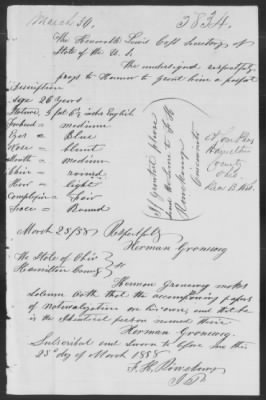 March 30.
3824.
The Honorable Lewis Cass Secretary of
State of the U. S.
The undersigned respectfully
prays to Honor to grant him a passport
Description
Age 26 Years
Stature, 5 feet 6½ inches English
Forehead = medium
Eyes = Blue
Nose = blunt
Mouth = medium
Chin = round
Hair = light
Complexion = Fair
Face = Round
If granted please
send the same to F. H.
Cincinnati
Hamilton
County
Ohio
March 25/58 Respectfully
Herman Groneweg
The State of Ohio
Hamilton County ss
Herman Groneweg makes
solemn oath that the accompanying papers
of naturalization are his own, and that he
is the identical person named therein
Herman Groneweg.
Subscribed and sworn to before me this
25th day of March 1858
F. H.